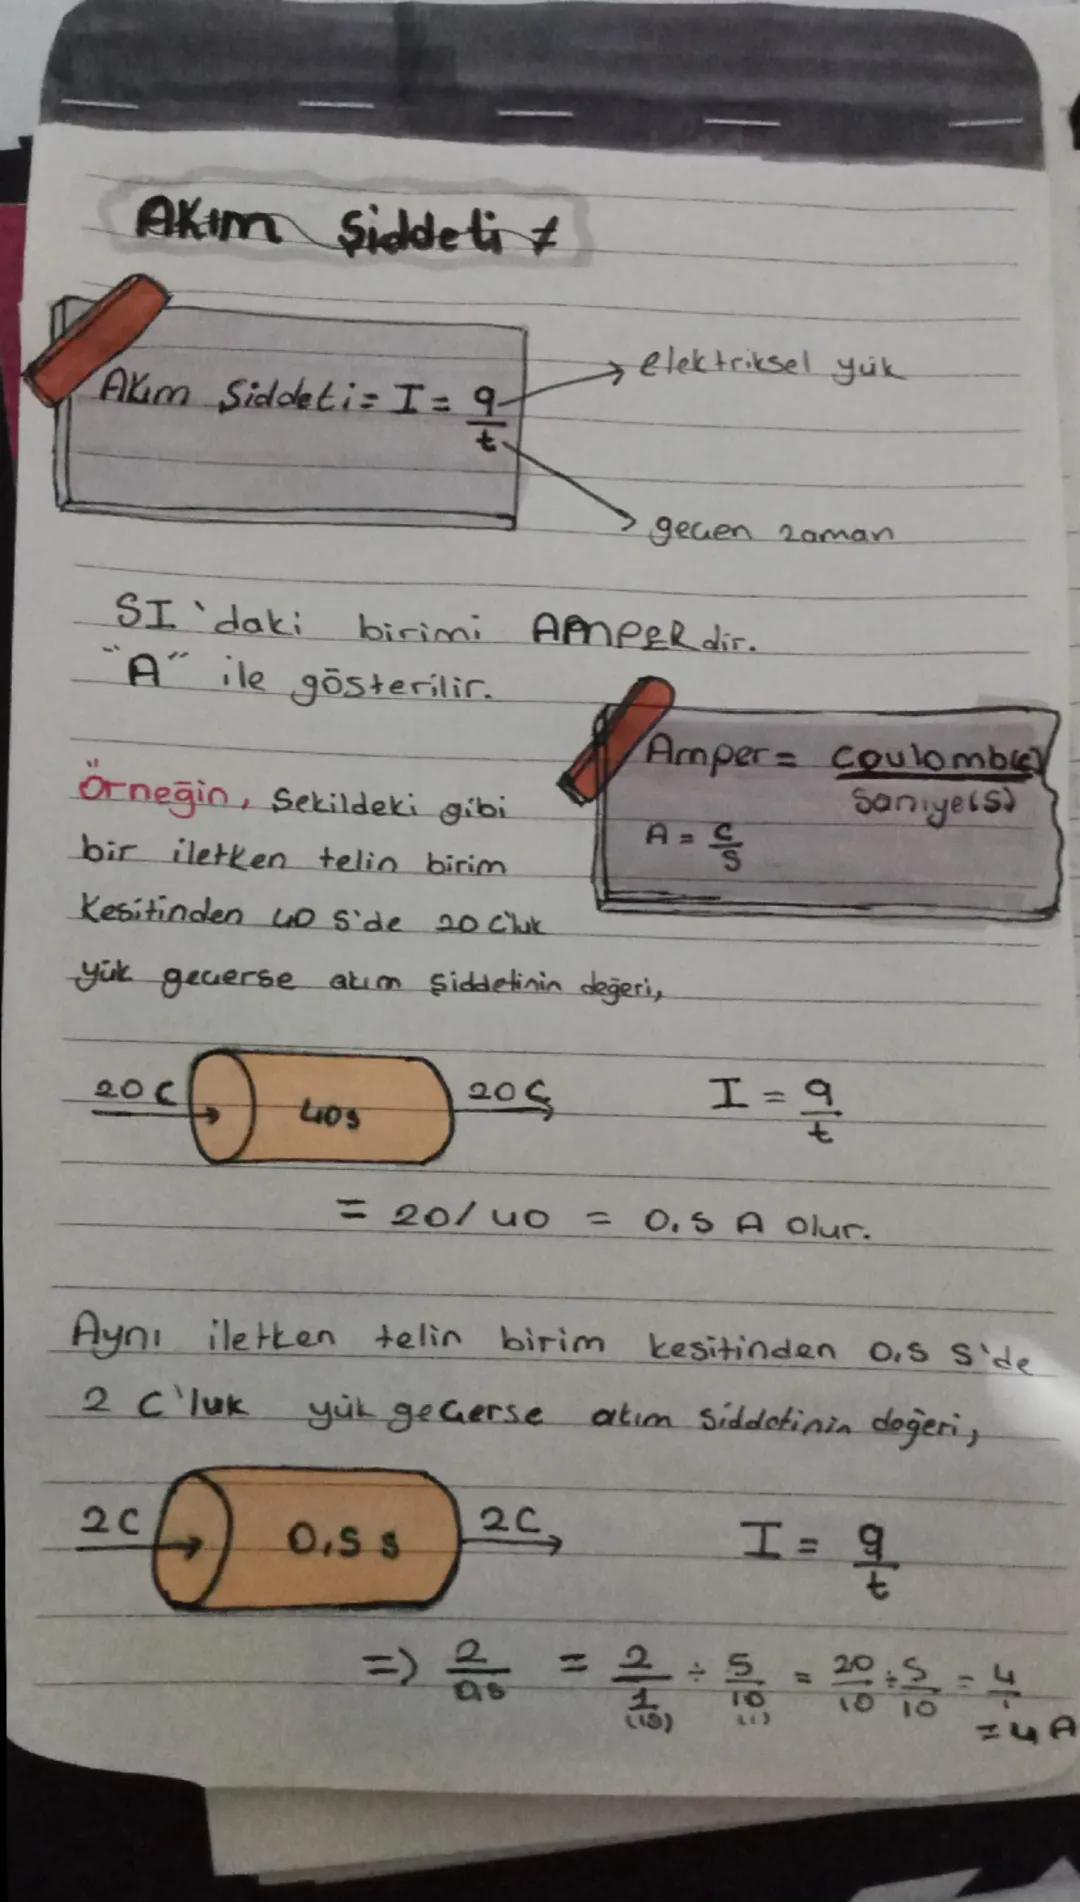 Akım Şiddeti
Akım Şiddeti = I = q/t
elektriksel yük
geçen zaman
SI'daki birimi AMPERdir.
"A" ile gösterilir.
Amper = Coulomb(c)/Saniye(s)
A = C/S
Örneğin, Şekildeki gibi
bir iletken telin birim
Kesitinden 40 s'de 20 C'luk
yük geçerse akım şiddetinin değeri,
20 C 40s 20 C I = q/t
= 20/40 = 0,5 A olur.
Aynı iletken telin birim kesitinden 0,5 s'de
2 C'luk yük geçerse akım şiddetinin değeri,
2C 0,5 s 2C I = q/t
=> 2/0,5 = 2/1 (10) ÷ 5/10 (1) = 20/10 ÷ 5/10 = 4/1
= 4 A